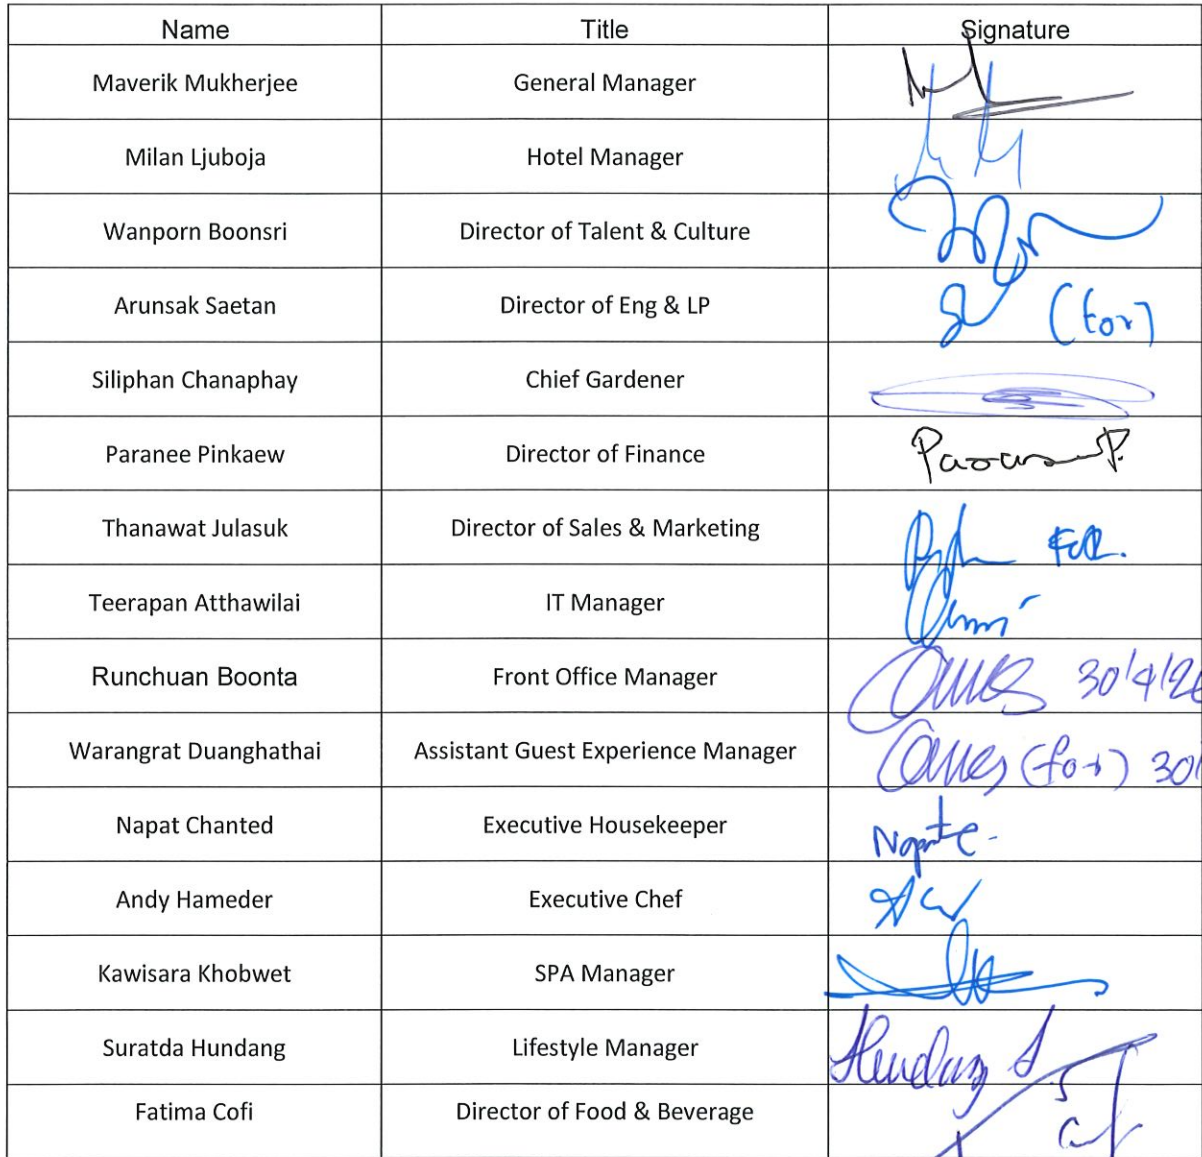 Name Title Signature
Maverik Mukherjee General Manager
Milan Ljuboja Hotel Manager
Wanporn Boonsri Director of Talent & Culture
Arunsak Saetan Director of Eng & LP (for)
Siliphan Chanaphay Chief Gardener
Paranee Pinkaew Director of Finance
Thanawat Julasuk Director of Sales & Marketing FOR.
Teerapan Atthawilai IT Manager
Runchuan Boonta Front Office Manager 30/4/26
Warangrat Duanghathai Assistant Guest Experience Manager (for) 30/
Napat Chanted Executive Housekeeper
Andy Hameder Executive Chef
Kawisara Khobwet SPA Manager
Suratda Hundang Lifestyle Manager Hundang S
Fatima Cofi Director of Food & Beverage